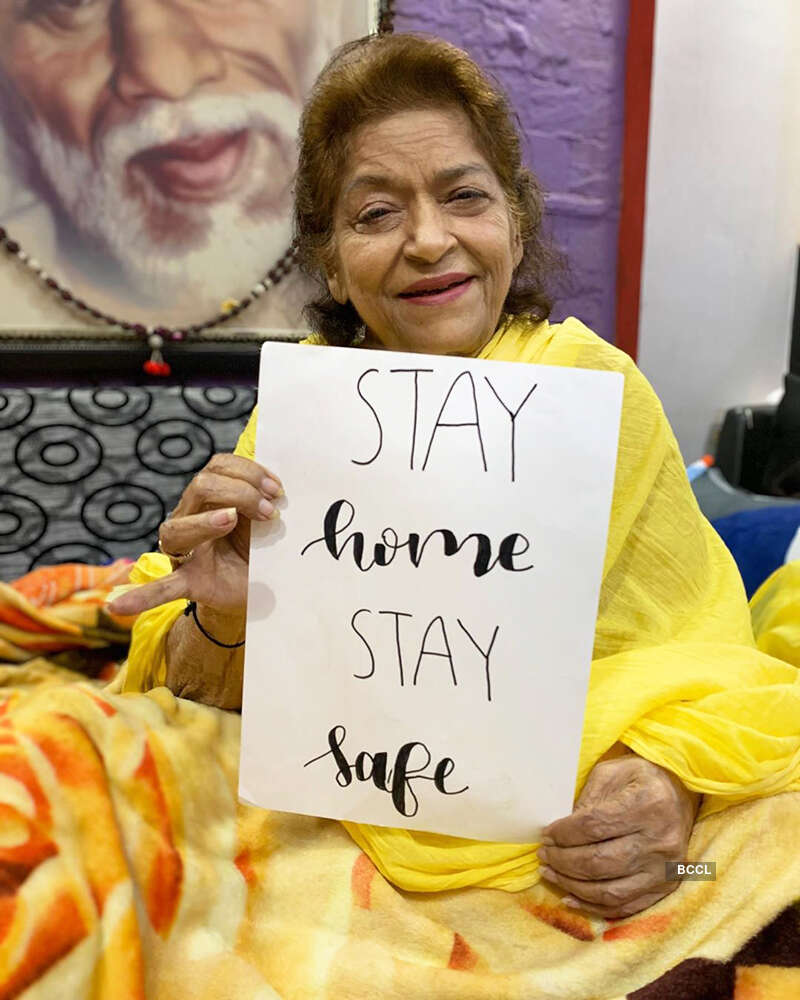 STAY
home
STAY
safe
BCCL